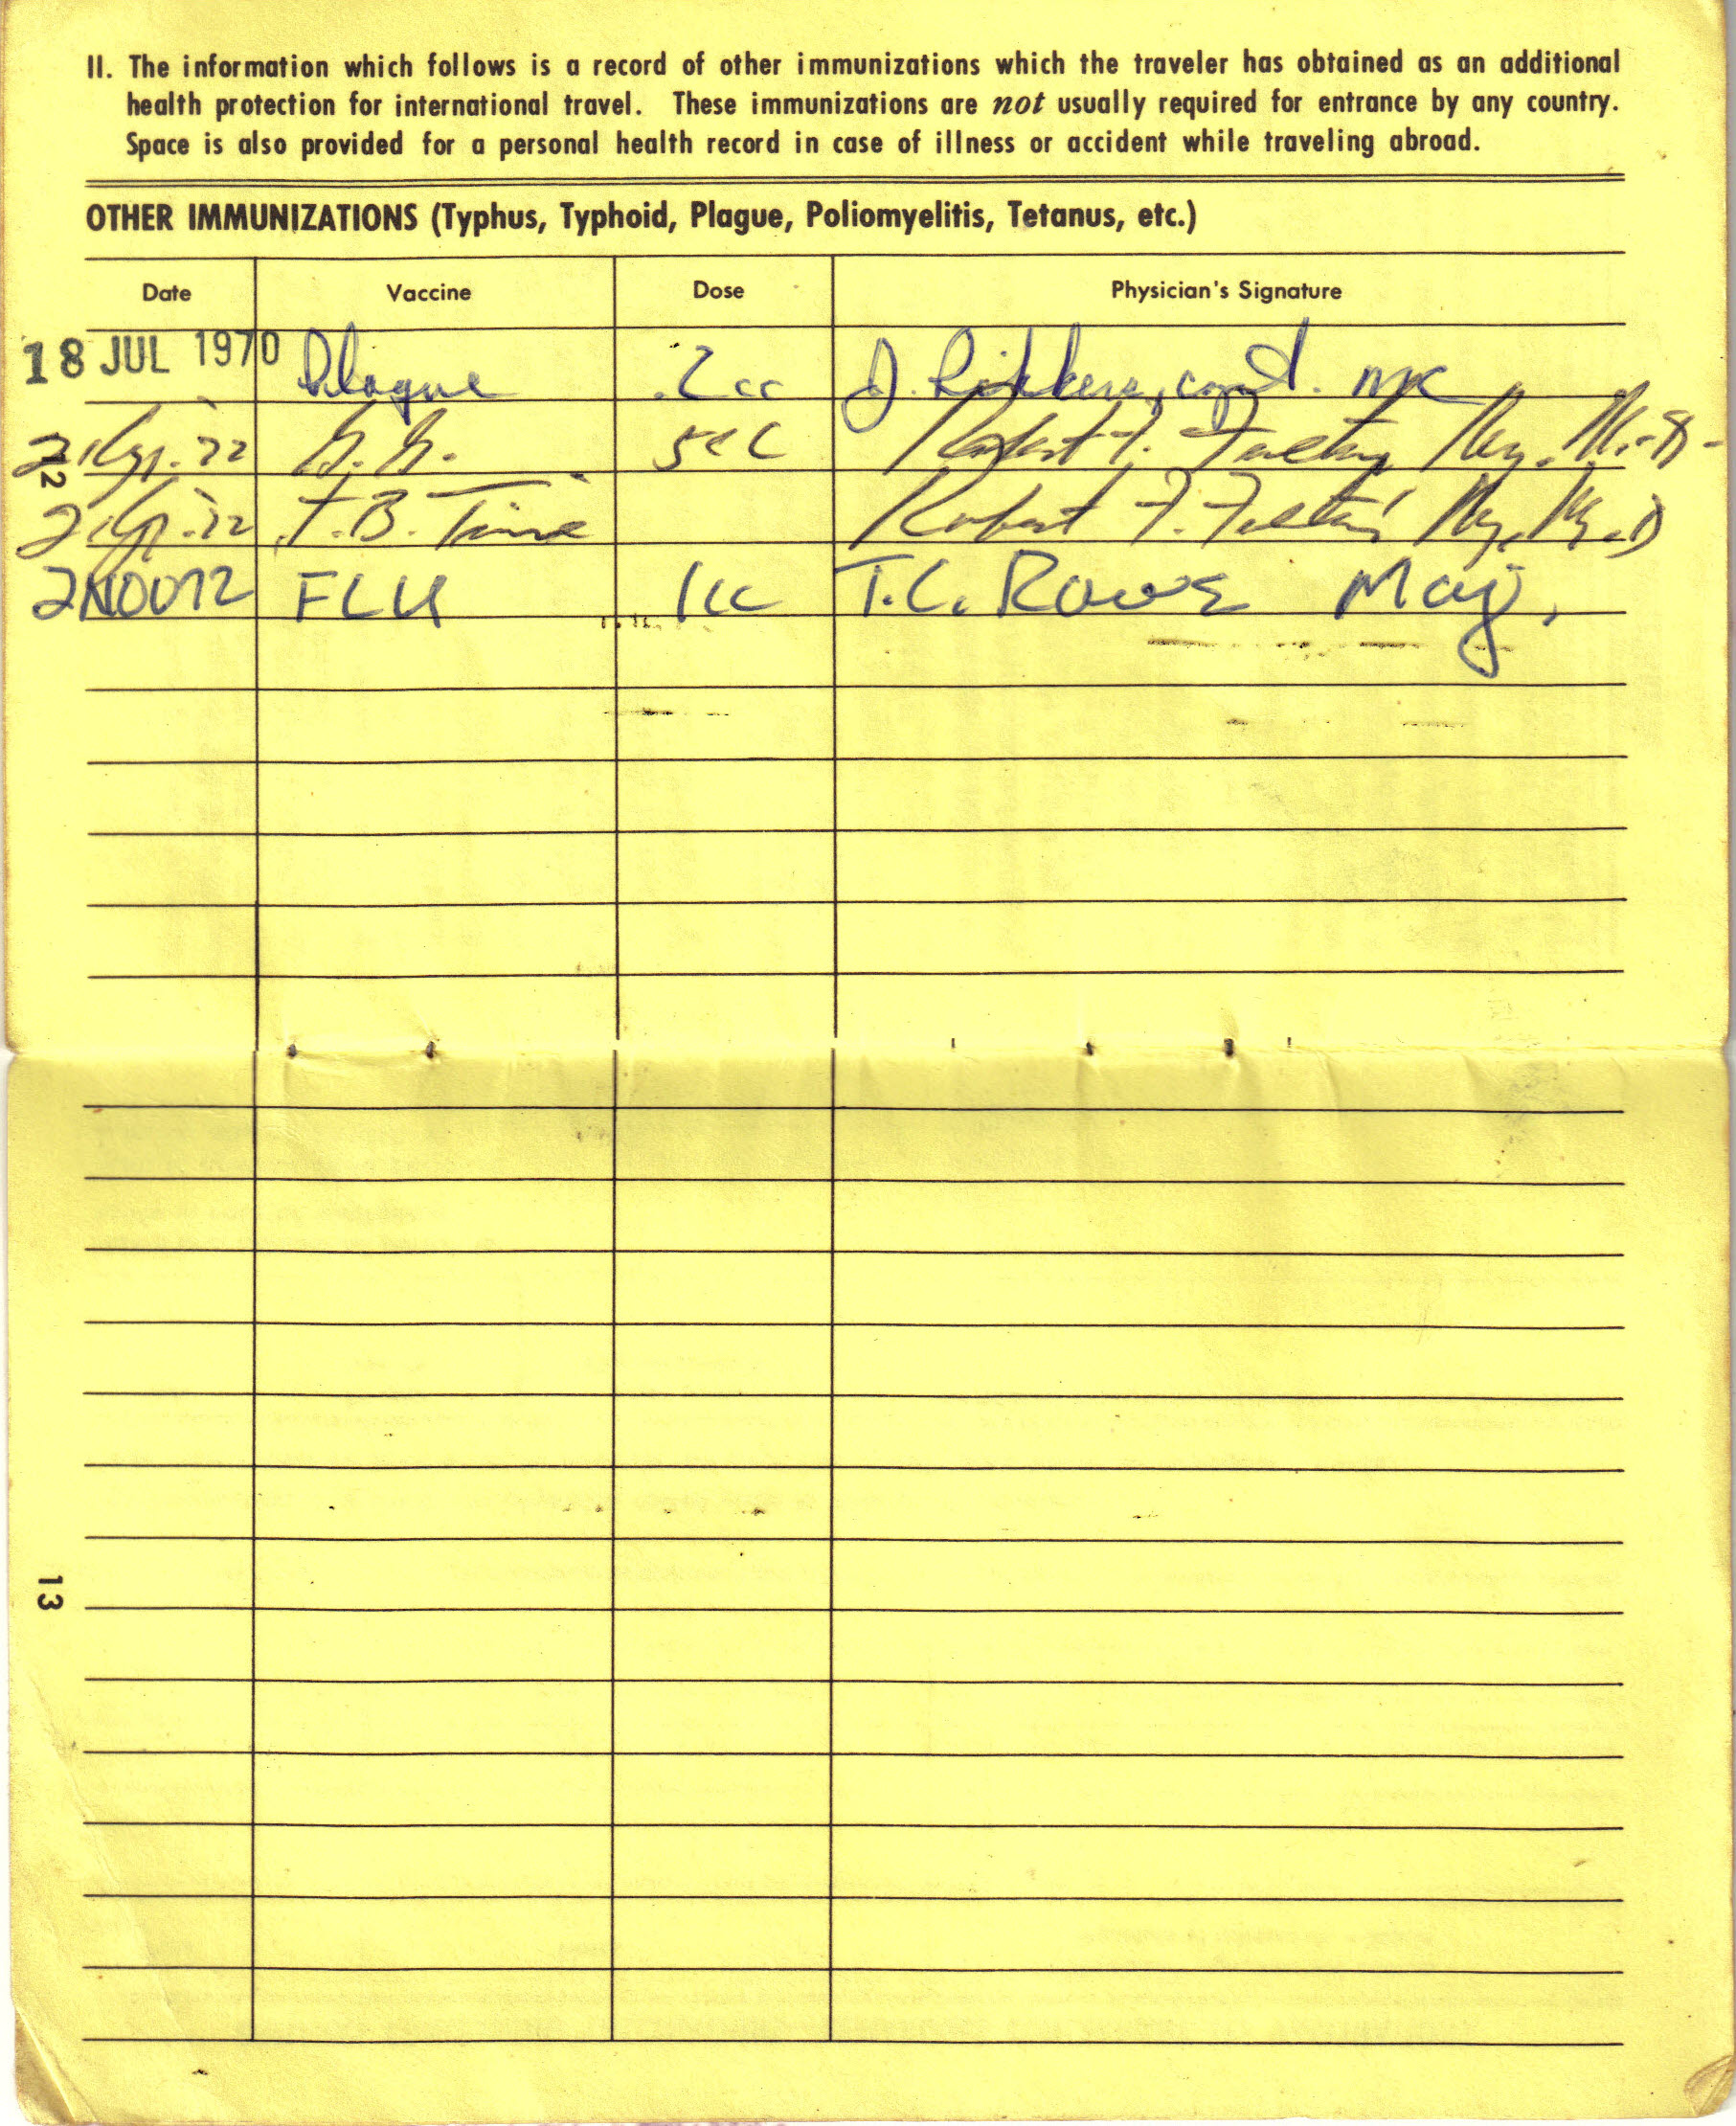 II. The information which follows is a record of other immunizations which the traveler has obtained as an additional
health protection for international travel. These immunizations are not usually required for entrance by any country.
Space is also provided for a personal health record in case of illness or accident while traveling abroad.
OTHER IMMUNIZATIONS (Typhus, Typhoid, Plague, Poliomyelitis, Tetanus, etc.)
Date Vaccine Dose Physician's Signature
18 JUL 1970 Plague .2cc J. capt. MC
72 G.G. 5cc Robert F. M.D.
12
72 T.B. Tine Robert F. M.D
2NOV72 FLU 1cc T.C. Rowe Maj.
13